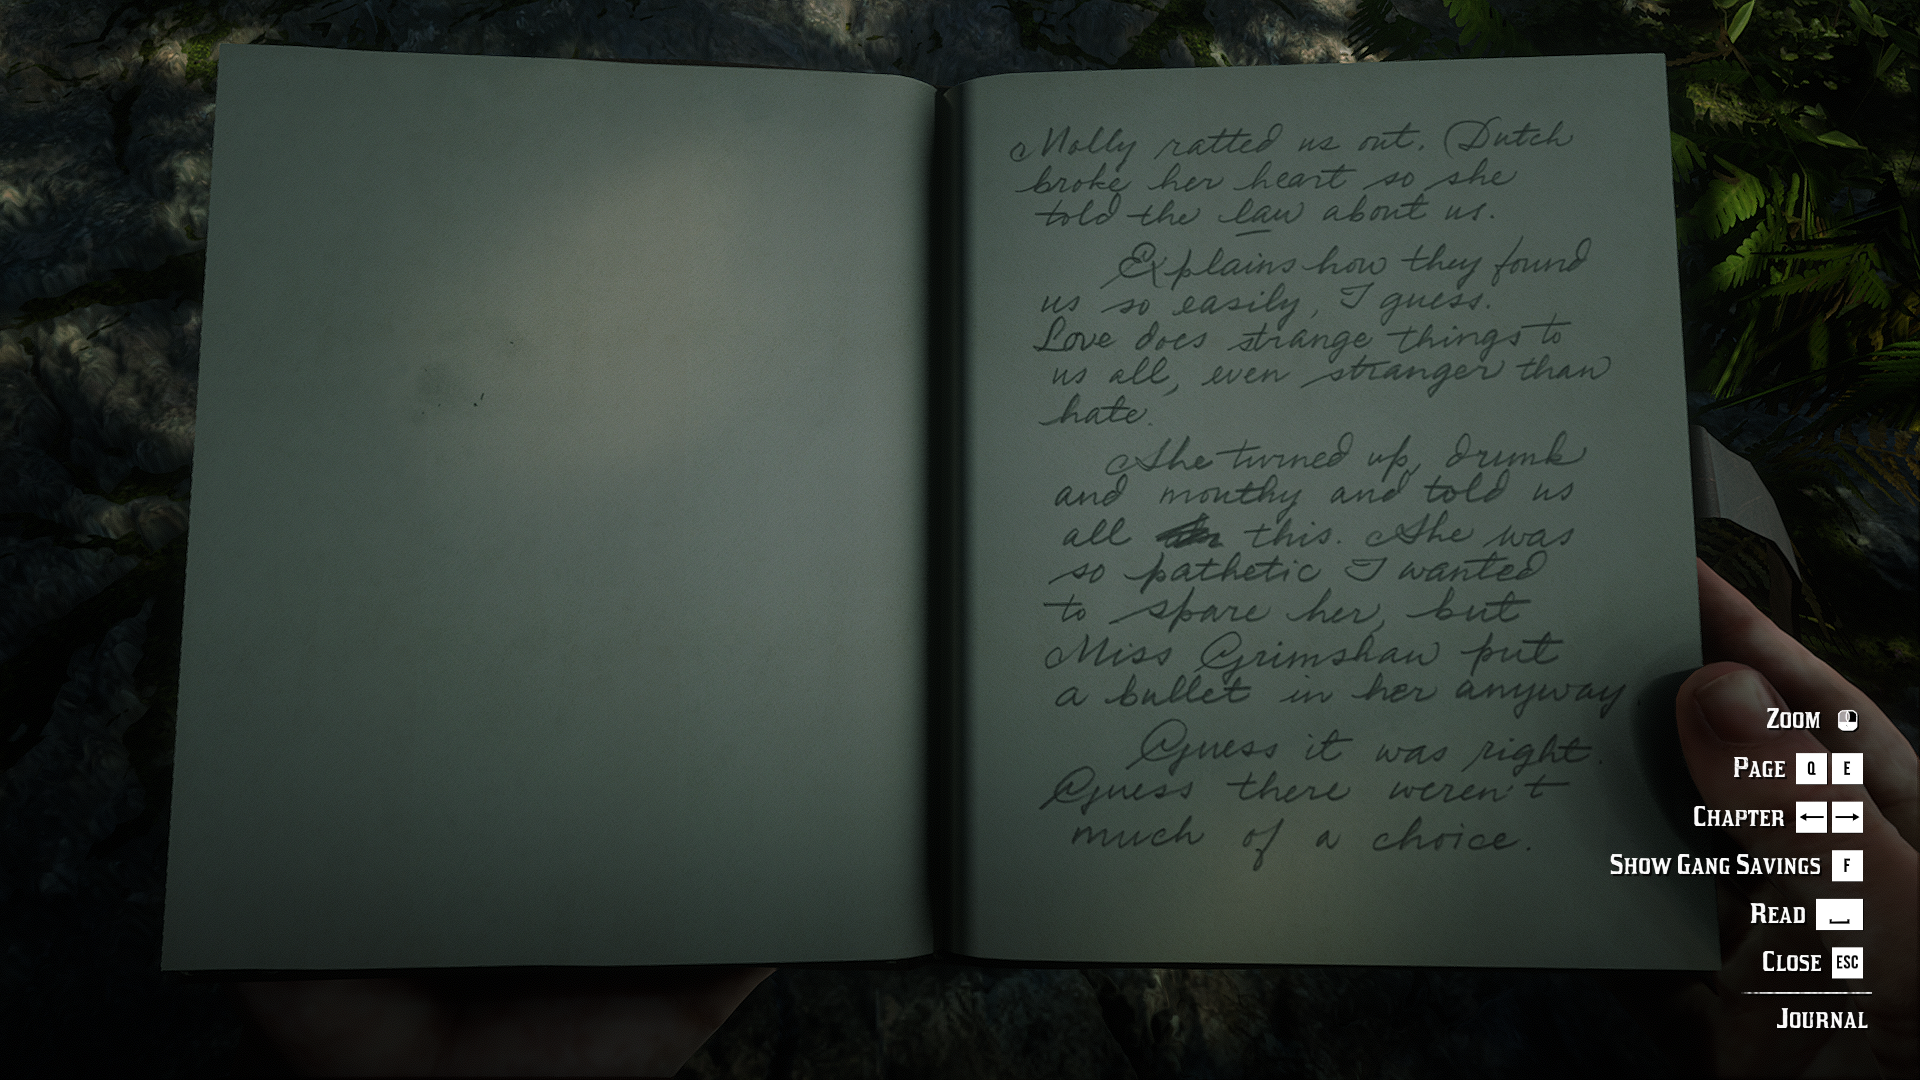 Molly ratted us out. Dutch
broke her heart so she
told the law about us.
Explains how they found
us so easily, I guess.
Love does strange things to
us all, even stranger than
hate.
She turned up, drunk
and mouthy and told us
all this. She was
so pathetic I wanted
to spare her, but
Miss Grimshaw put
a bullet in her anyway.
Guess it was right.
Guess there weren't
much of a choice.
ZOOM
PAGE Q E
CHAPTER ← →
SHOW GANG SAVINGS F
READ
CLOSE ESC
JOURNAL